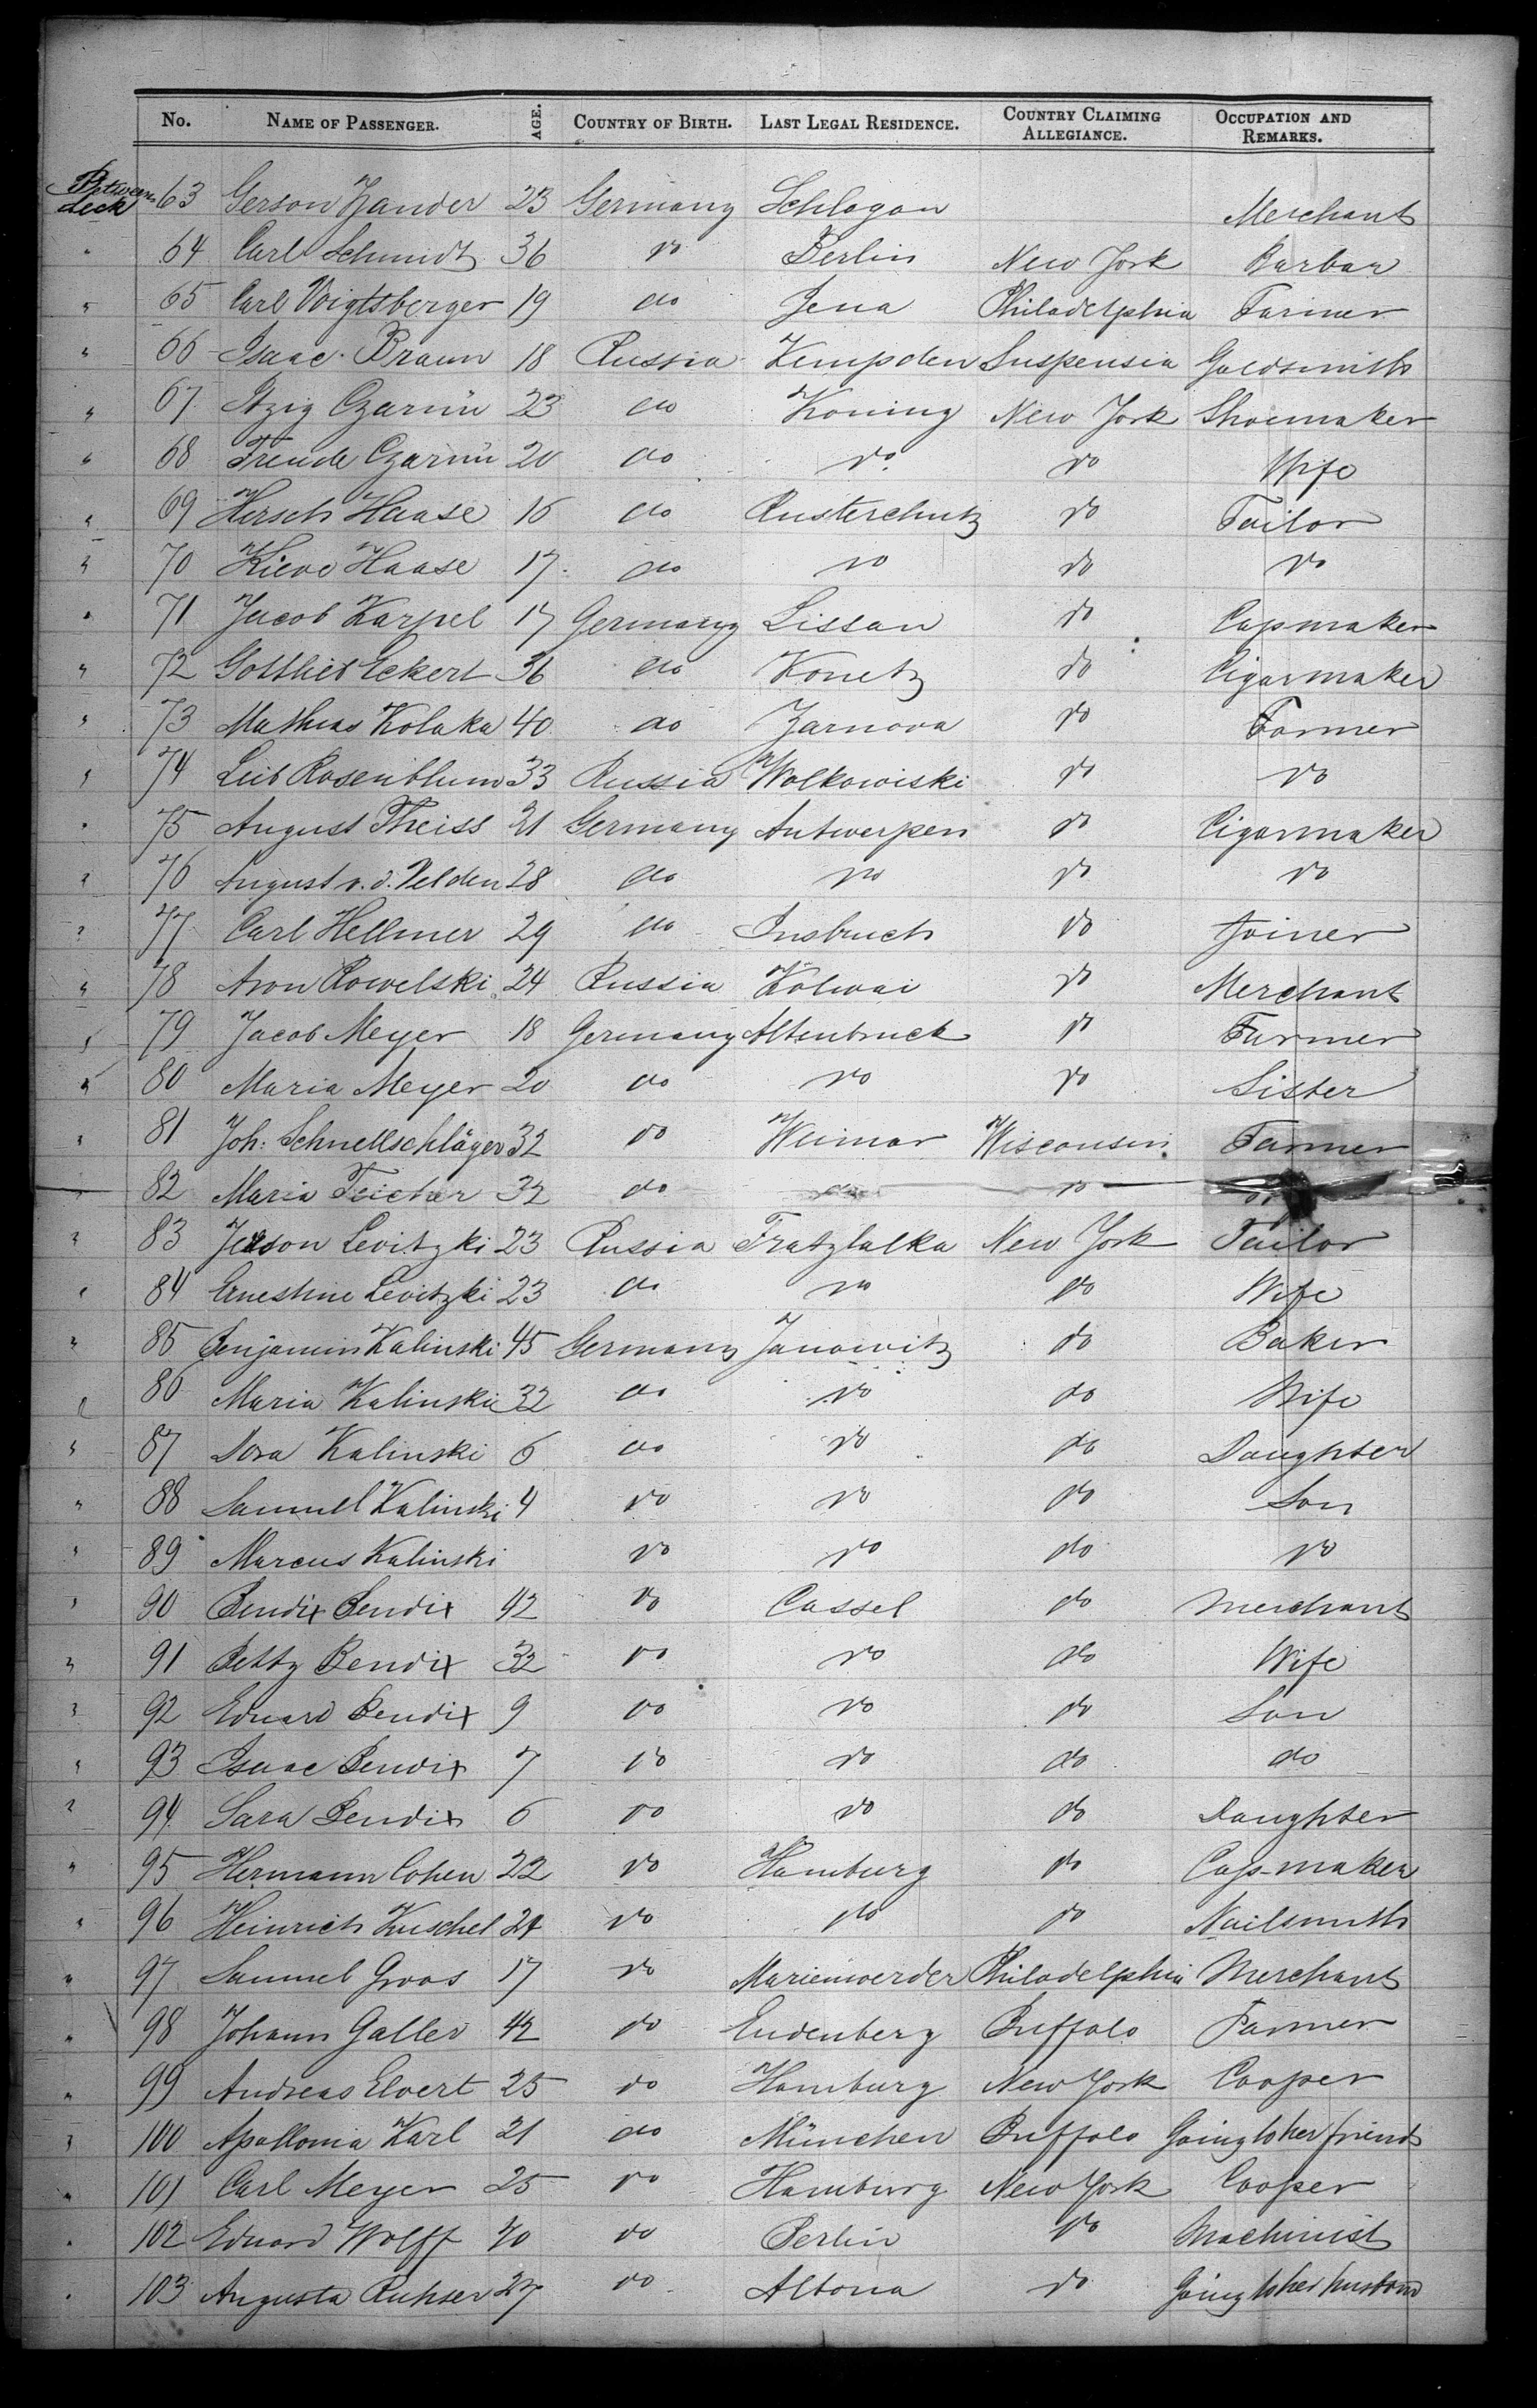 No. NAME OF PASSENGER. AGE. COUNTRY OF BIRTH. LAST LEGAL RESIDENCE. COUNTRY CLAIMING ALLEGIANCE. OCCUPATION AND REMARKS.
Between deck 63 Gerson Zander 23 Germany Schlogon Merchant
" 64 Carl Schmidt 36 do Berlin New York Barber
" 65 Carl Voigtsberger 19 do Jena Philadelphia Farmer
" 66 Isaac Braun 18 Russia Kempden Suspensia Goldsmith
" 67 Itzig Czarnü 23 do Koning New York Shoemaker
" 68 Freude Czarnü 20 do do do Wife
" 69 Hersch Haase 16 do Rusterchutz do Tailor
" 70 Kieve Haase 17 do do do do
" 71 Jacob Karpel 17 Germany Lissau do Capmaker
" 72 Gottlieb Eckert 36 do Konetz do Cigarmaker
" 73 Mathias Kolaka 40 do Zarnova do Farmer
" 74 Leib Rosenblum 33 Russia Wolkowiski do do
" 75 August Theiss 21 Germany Antwerpen do Cigarmaker
" 76 August v. d. Velden 28 do do do do
" 77 Carl Hellmer 29 do Insbruch do Joiner
" 78 Aron Rowelski 24 Russia Kolwai do Merchant
" 79 Jacob Meyer 18 Germany Altenbruck do Farmer
" 80 Maria Meyer 20 do do do Sister
" 81 Joh: Schnellschläger 32 do Weimar Wisconsin Farmer
82 Maria Teicher 32 do do do
" 83 Jesson Levitzki 23 Russia Fratzlalka New York Tailor
" 84 Ernestine Levitzki 23 do do do Wife
" 85 Benjamin Kalinski 45 Germany Janowitz do Baker
" 86 Maria Kalinski 32 do do do Wife
" 87 Dora Kalinski 6 do do do Daughter
" 88 Samuel Kalinski 4 do do do Son
" 89 Marcus Kalinski do do do do
" 90 Bendix Bendix 42 do Cassel do Merchant
" 91 Betty Bendix 32 do do do Wife
" 92 Eduard Bendix 9 do do do Son
" 93 Isaac Bendix 7 do do do do
" 94 Sara Bendix 6 do do do Daughter
" 95 Hermann Cohen 22 do Hamburg do Cap-maker
" 96 Heinrich Kuschel 24 do do do Nailsmith
" 97 Samuel Groos 17 do Marienwerder Philadelphia Merchant
" 98 Johann Galler 42 do Endenberg Buffalo Farmer
" 99 Andreas Elvert 25 do Hamburg New York Cooper
" 100 Apollonia Karl 21 do München Buffalo Going to her friends
" 101 Carl Meyer 25 do Hamburg New York Cooper
" 102 Eduard Wolff 40 do Berlin do Machinist
" 103 Augusta Ruhser 27 do Altona do Going to her husband